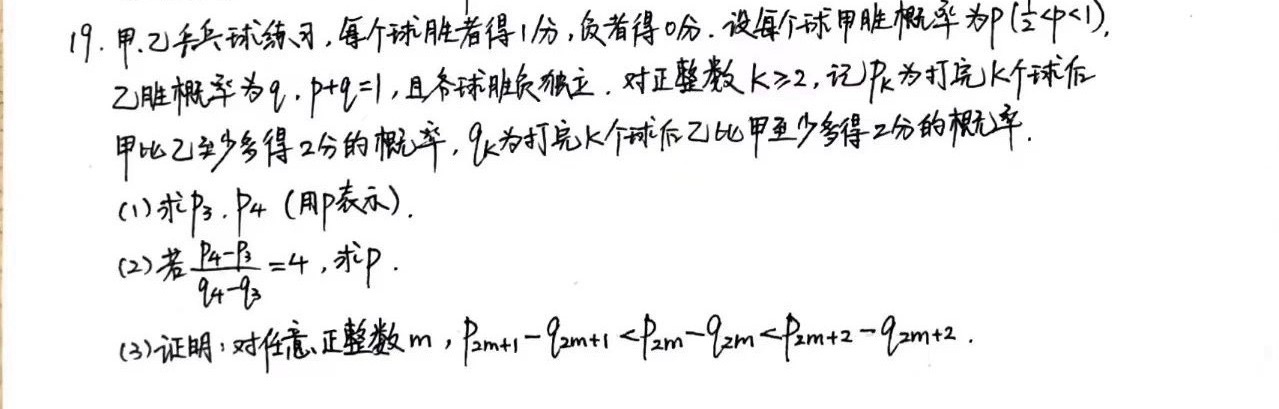 19. 甲、乙乒乓球练习,每个球胜者得1分,负者得0分.设每个球甲胜概率为p(½<p<1),
乙胜概率为q,p+q=1,且各球胜负独立.对正整数k≥2,记pₖ为打完k个球后
甲比乙至少多得2分的概率,qₖ为打完k个球后乙比甲至少多得2分的概率.
(1)求p₃,p₄(用p表示).
(2)若(p₄-p₃)/(q₄-q₃)=4,求p.
(3)证明:对任意正整数m,p₂ₘ₊₁-q₂ₘ₊₁<p₂ₘ-q₂ₘ<p₂ₘ₊₂-q₂ₘ₊₂.